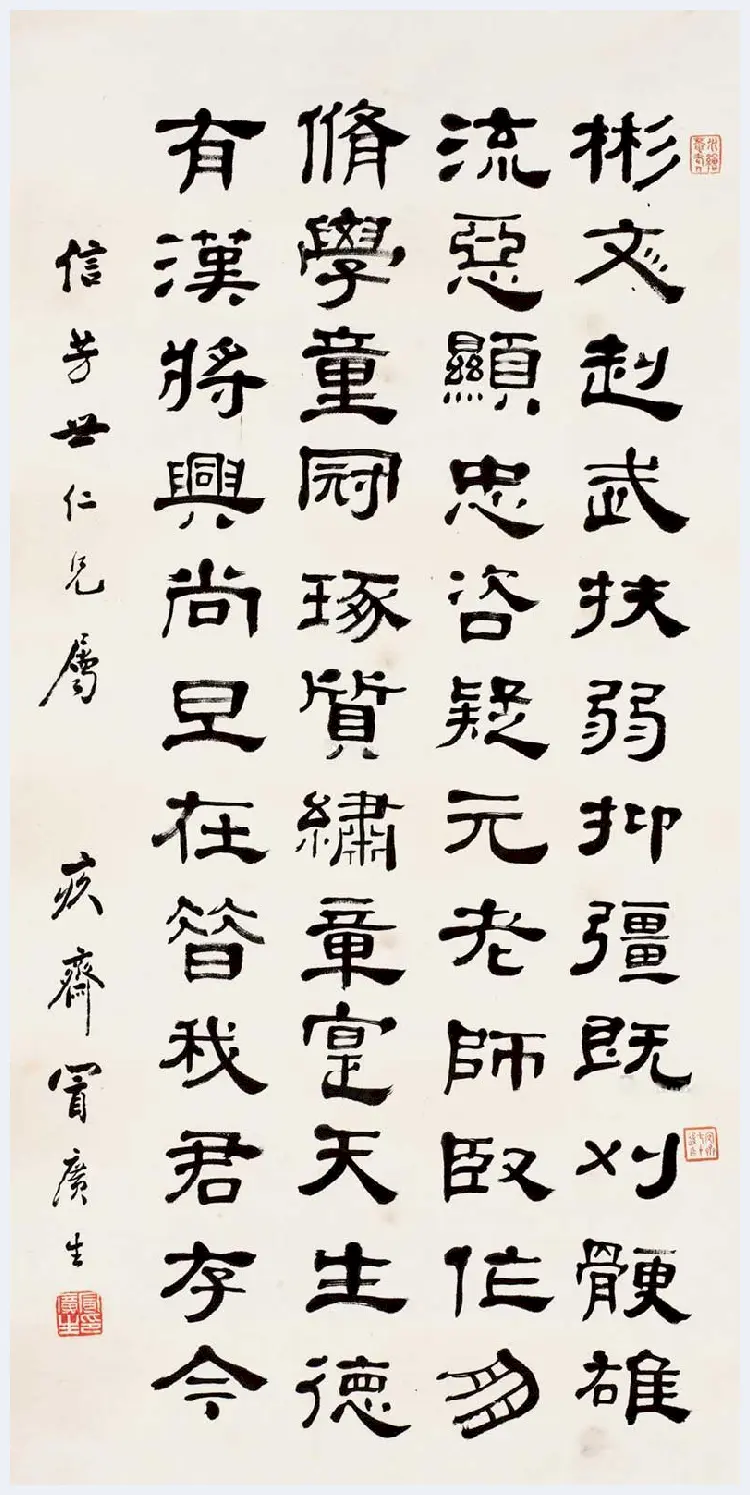 彬文赳武扶弱抑彊既刈骾雄
流惡顯忠咨疑元老師臤作朋
脩學童冠琢質繡章寔天生德
有漢將興尚旦在昔我君存今
信芳世仁兄屬 疚齋冒廣生